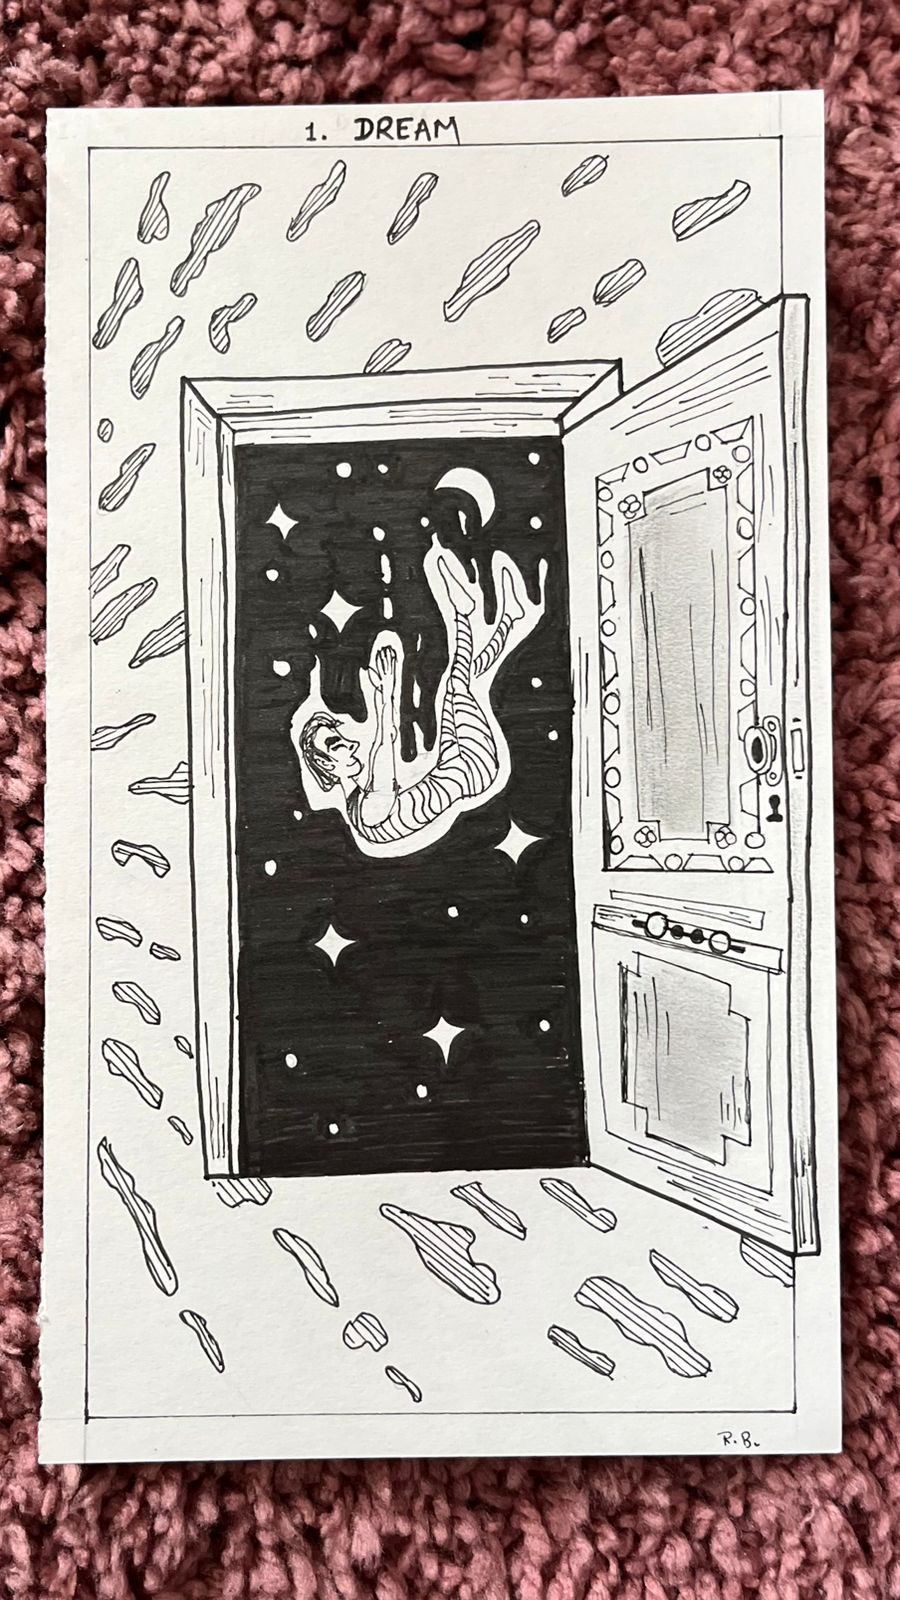 1. DREAM
R.B.